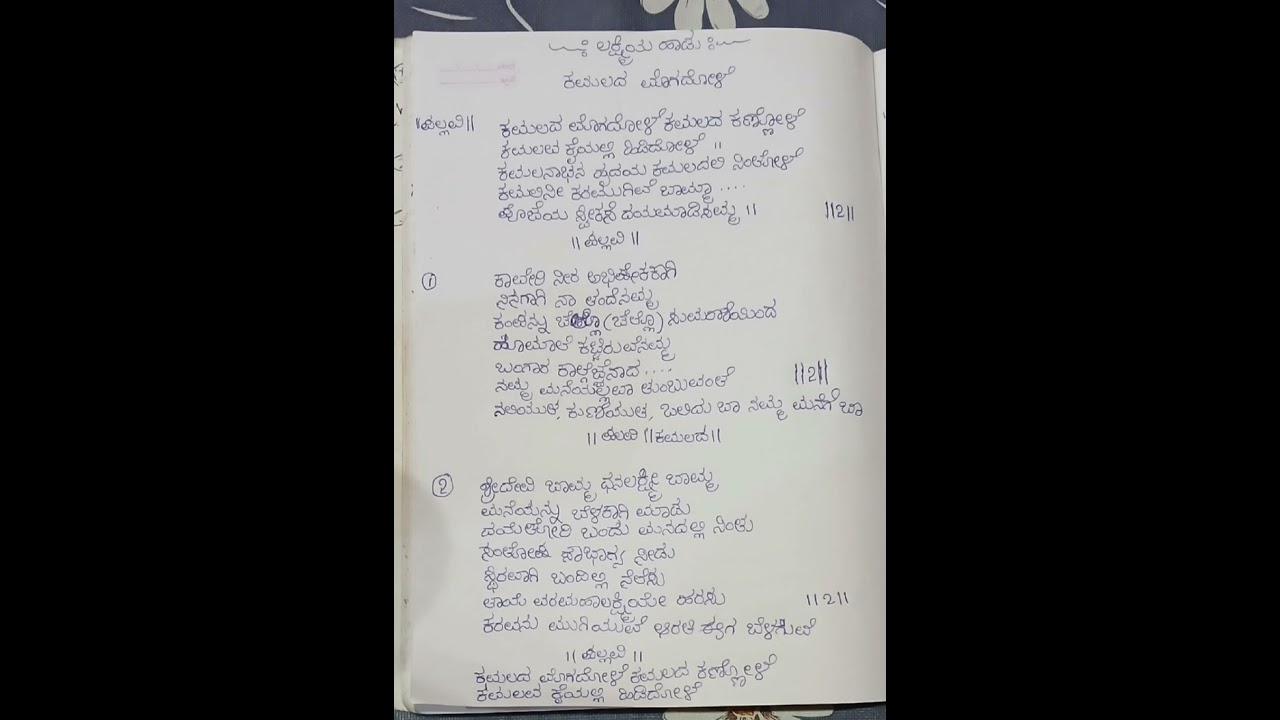 ಲಕ್ಷ್ಮಿಯ ಹಾಡು
ಕಮಲದ ಮೊಗದೋಳೆ
॥ಪಲ್ಲವಿ॥ ಕಮಲದ ಮೊಗದೋಳೆ ಕಮಲದ ಕಣ್ಣೋಳೆ
ಕಮಲವ ಕೈಯಲ್ಲಿ ಹಿಡಿದೋಳೆ ॥
ಕಮಲನಾಭನ ಹೃದಯ ಕಮಲದಲಿ ನಿಂತೋಳೆ
ಕಮಲಿನೀ ಕರಮುಗಿವೆ ಬಾಮ್ಮಾ ....
ಪೂಜೆಯ ಸ್ವೀಕರಿಸೆ ದಯಮಾಡಿಸಮ್ಮ ॥ ॥2॥
॥ ಪಲ್ಲವಿ ॥
1 ಕಾವೇರಿ ನೀರ ಅಭಿಷೇಕಕಾಗಿ
ನಿನಗಾಗಿ ನಾ ತಂದೆನಮ್ಮ
ಕಂಪನ್ನು ಚೆಲ್ಲೊ (ಚೆಲ್ಲೊ) ಸುಮರಾಶಿಯಿಂದ
ಹೂಮಾಲೆ ಕಟ್ಟಿರುವೆನಮ್ಮ
ಬಂಗಾರ ಕಾಲ್ಗೆಜ್ಜೆನಾದ ....
ನಮ್ಮ ಮನೆಯಲ್ಲವಾ ತುಂಬುವಂತೆ ॥2॥
ನಲಿಯುತ, ಕುಣಿಯುತ, ಒಲಿದು ಬಾ ನಮ್ಮ ಮನೆಗೆ ಬಾ
॥ ಪಲವಿ ॥ಕಮಲದ॥
2 ಶ್ರೀದೇವಿ ಬಾಮ್ಮ ಧನಲಕ್ಷ್ಮೀ ಬಾಮ್ಮ
ಮನೆಯನ್ನು ಬೆಳಕಾಗಿ ಮಾಡು
ದಯೆತೋರಿ ಬಂದು ಮನದಲ್ಲಿ ನಿಂತು
ಸಂತೋಷ ಸೌಭಾಗ್ಯ ನೀಡು
ಸ್ಥಿರವಾಗಿ ಬಂದಿಲ್ಲಿ ನೆಲೆಸು
ತಾಯೆ ವರಮಹಾಲಕ್ಷ್ಮಿಯೇ ಹರಸು ॥2॥
ಕರವನು ಮುಗಿಯುವೆ ಆರತಿ ಈಗ ಬೆಳಗುವೆ
॥ ಪಲ್ಲವಿ ॥
ಕಮಲದ ಮೊಗದೋಳೆ ಕಮಲದ ಕಣ್ಣೋಳೆ
ಕಮಲವ ಕೈಯಲ್ಲಿ ಹಿಡಿದೋಳೆ